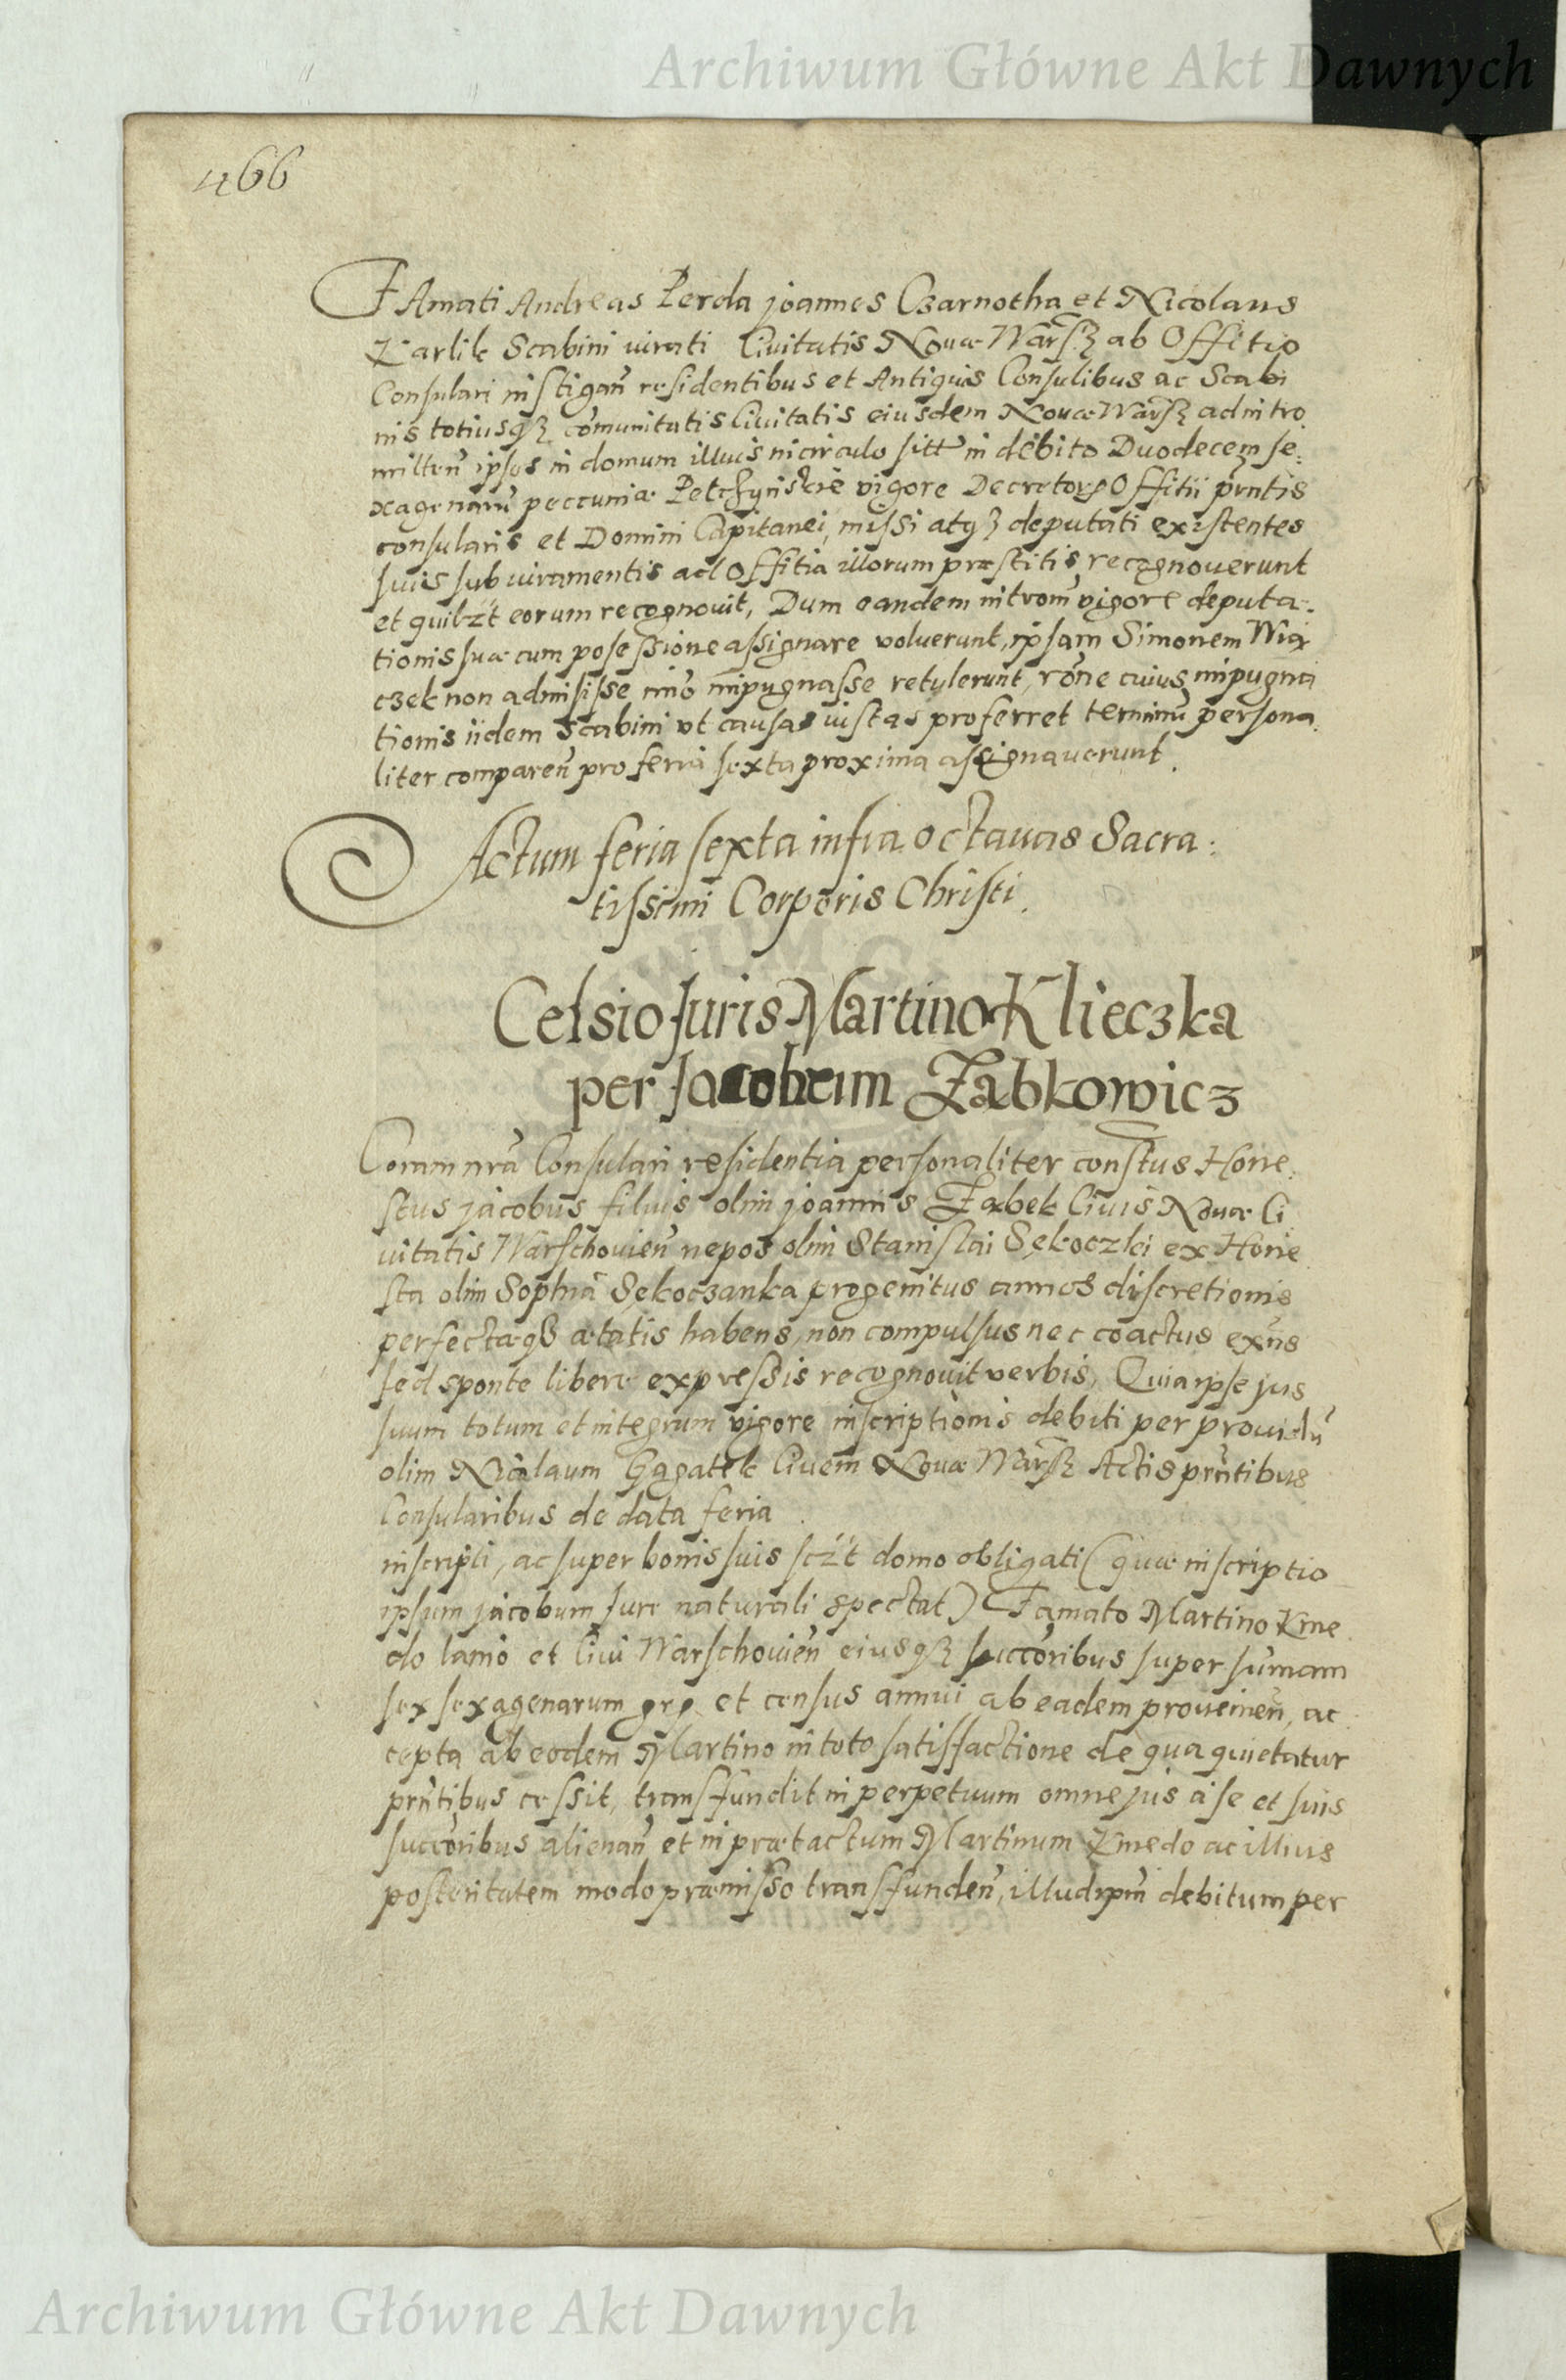 Archiwum Główne Akt Dawnych
466
FAmati Andreas Perda joannes Czarnotha et Nicolaus
Karlik Scabini iurati Civitatis Nouæ Warsz ab Offitio
Consulari instigan̄ residentibus et Antiquis Consulibus ac Scabi
nis totiusqȝ com̄unitatis Civitatis eiusdem Nouæ Warsz ad intro
mitten̄ ipsos in domum illius in circulo sitt̄ in debito Duodecem se:
xagenarū peccuniæ Pelczynskie vigore Decretorȝ Offitii pn̄tis
consularis et Domini Capitanei, missi atqȝ deputati existentes
suis sub iuramentis ad Offitia illorum præstitis recognouerunt
et quilzt eorum recognouit, Dum eandem introm̄ vigore deputa.
tionis suæ cum posessione assignare voluerunt, ipsam Simonem Wią
czek non admisisse imo impugnasse retulerunt, rōne cuius impugna
tionis iidem Scabini vt causas iustas proferret terminū persona
liter comparen̄ pro feria sexta proxima assignauerunt.
Actum feria sexta infra octauas Sacra:
tissimi Corporis Christi.
Celsio Juris Martino Klieczka
per Jacobum Ząbkowicz
Coram nr̄a Consulari residentia personaliter constus Hone
stus jacobus filius olim joannis Ząbek Ciuis Nouæ Ci
uitatis Warschouien̄ nepos olim Stanislai Sękoczki ex Hone
sta olim Sophia Sękoczanka progenitus annos discretionis
perfectæqȝ ætatis habens, non compulsus nec coactus exn̄s
sed sponte libere expressis recognouit verbis, Quia ipse jus
suum totum et integrum vigore inscriptionis debiti per prouidū
olim Nicolaum Gągatek Ciuem Nouæ Warsz Actis prn̄tibus
Consularibus de data feria .
inscripti, ac super bonis suis sczt domo obligati (quæ inscriptio
ipsum jacobum Jure naturali spectat) Famato Martino Kme
do lanio et Ciui Warschouien̄ eiusqȝ succōribus super sum̄am
sex sexagenarum grȝ et census annui ab eadem prouenien̄, ac
cepta ab eodem Martino in toto satisfactione de qua quietatur
prn̄tibus cessit, transfundit in perpetuum omne jus a se et suis
succōribus alienan̄ et in prætactum Martinum Kmedo ac illius
posteritatem modo præmisso transfunden̄, illud ipm̄ debitum per
Archiwum Główne Akt Dawnych